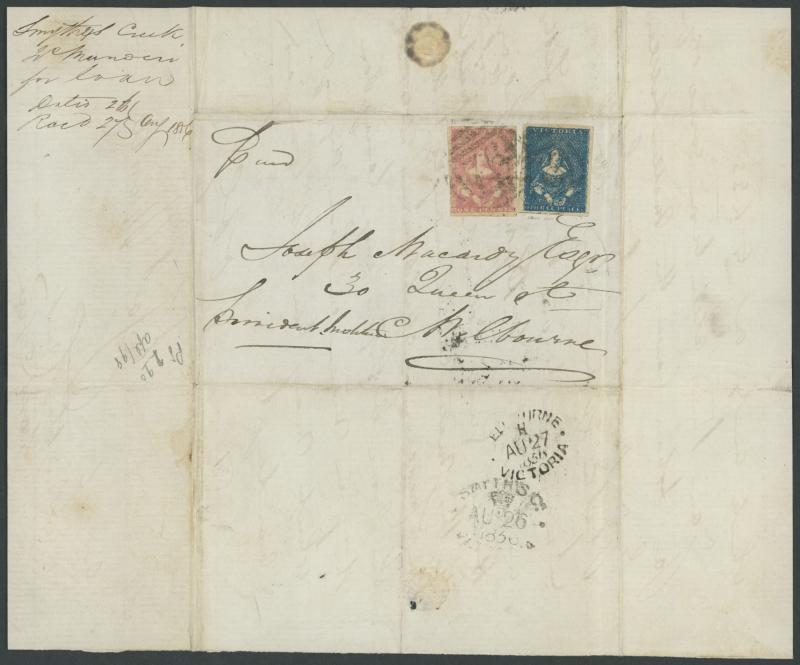 Smythes Creek
W Munden
for loan
Dated 26
Recd 27 Aug 1856
Paid
VICTORIA
ONE PENNY
THREE PENCE
Joseph Macardy Esqr
30 Queen St
Provident Institute Melbourne
ELBOURNE
H
AU 27
1856
VICTORIA
SMYTHS C
AU 26
1856